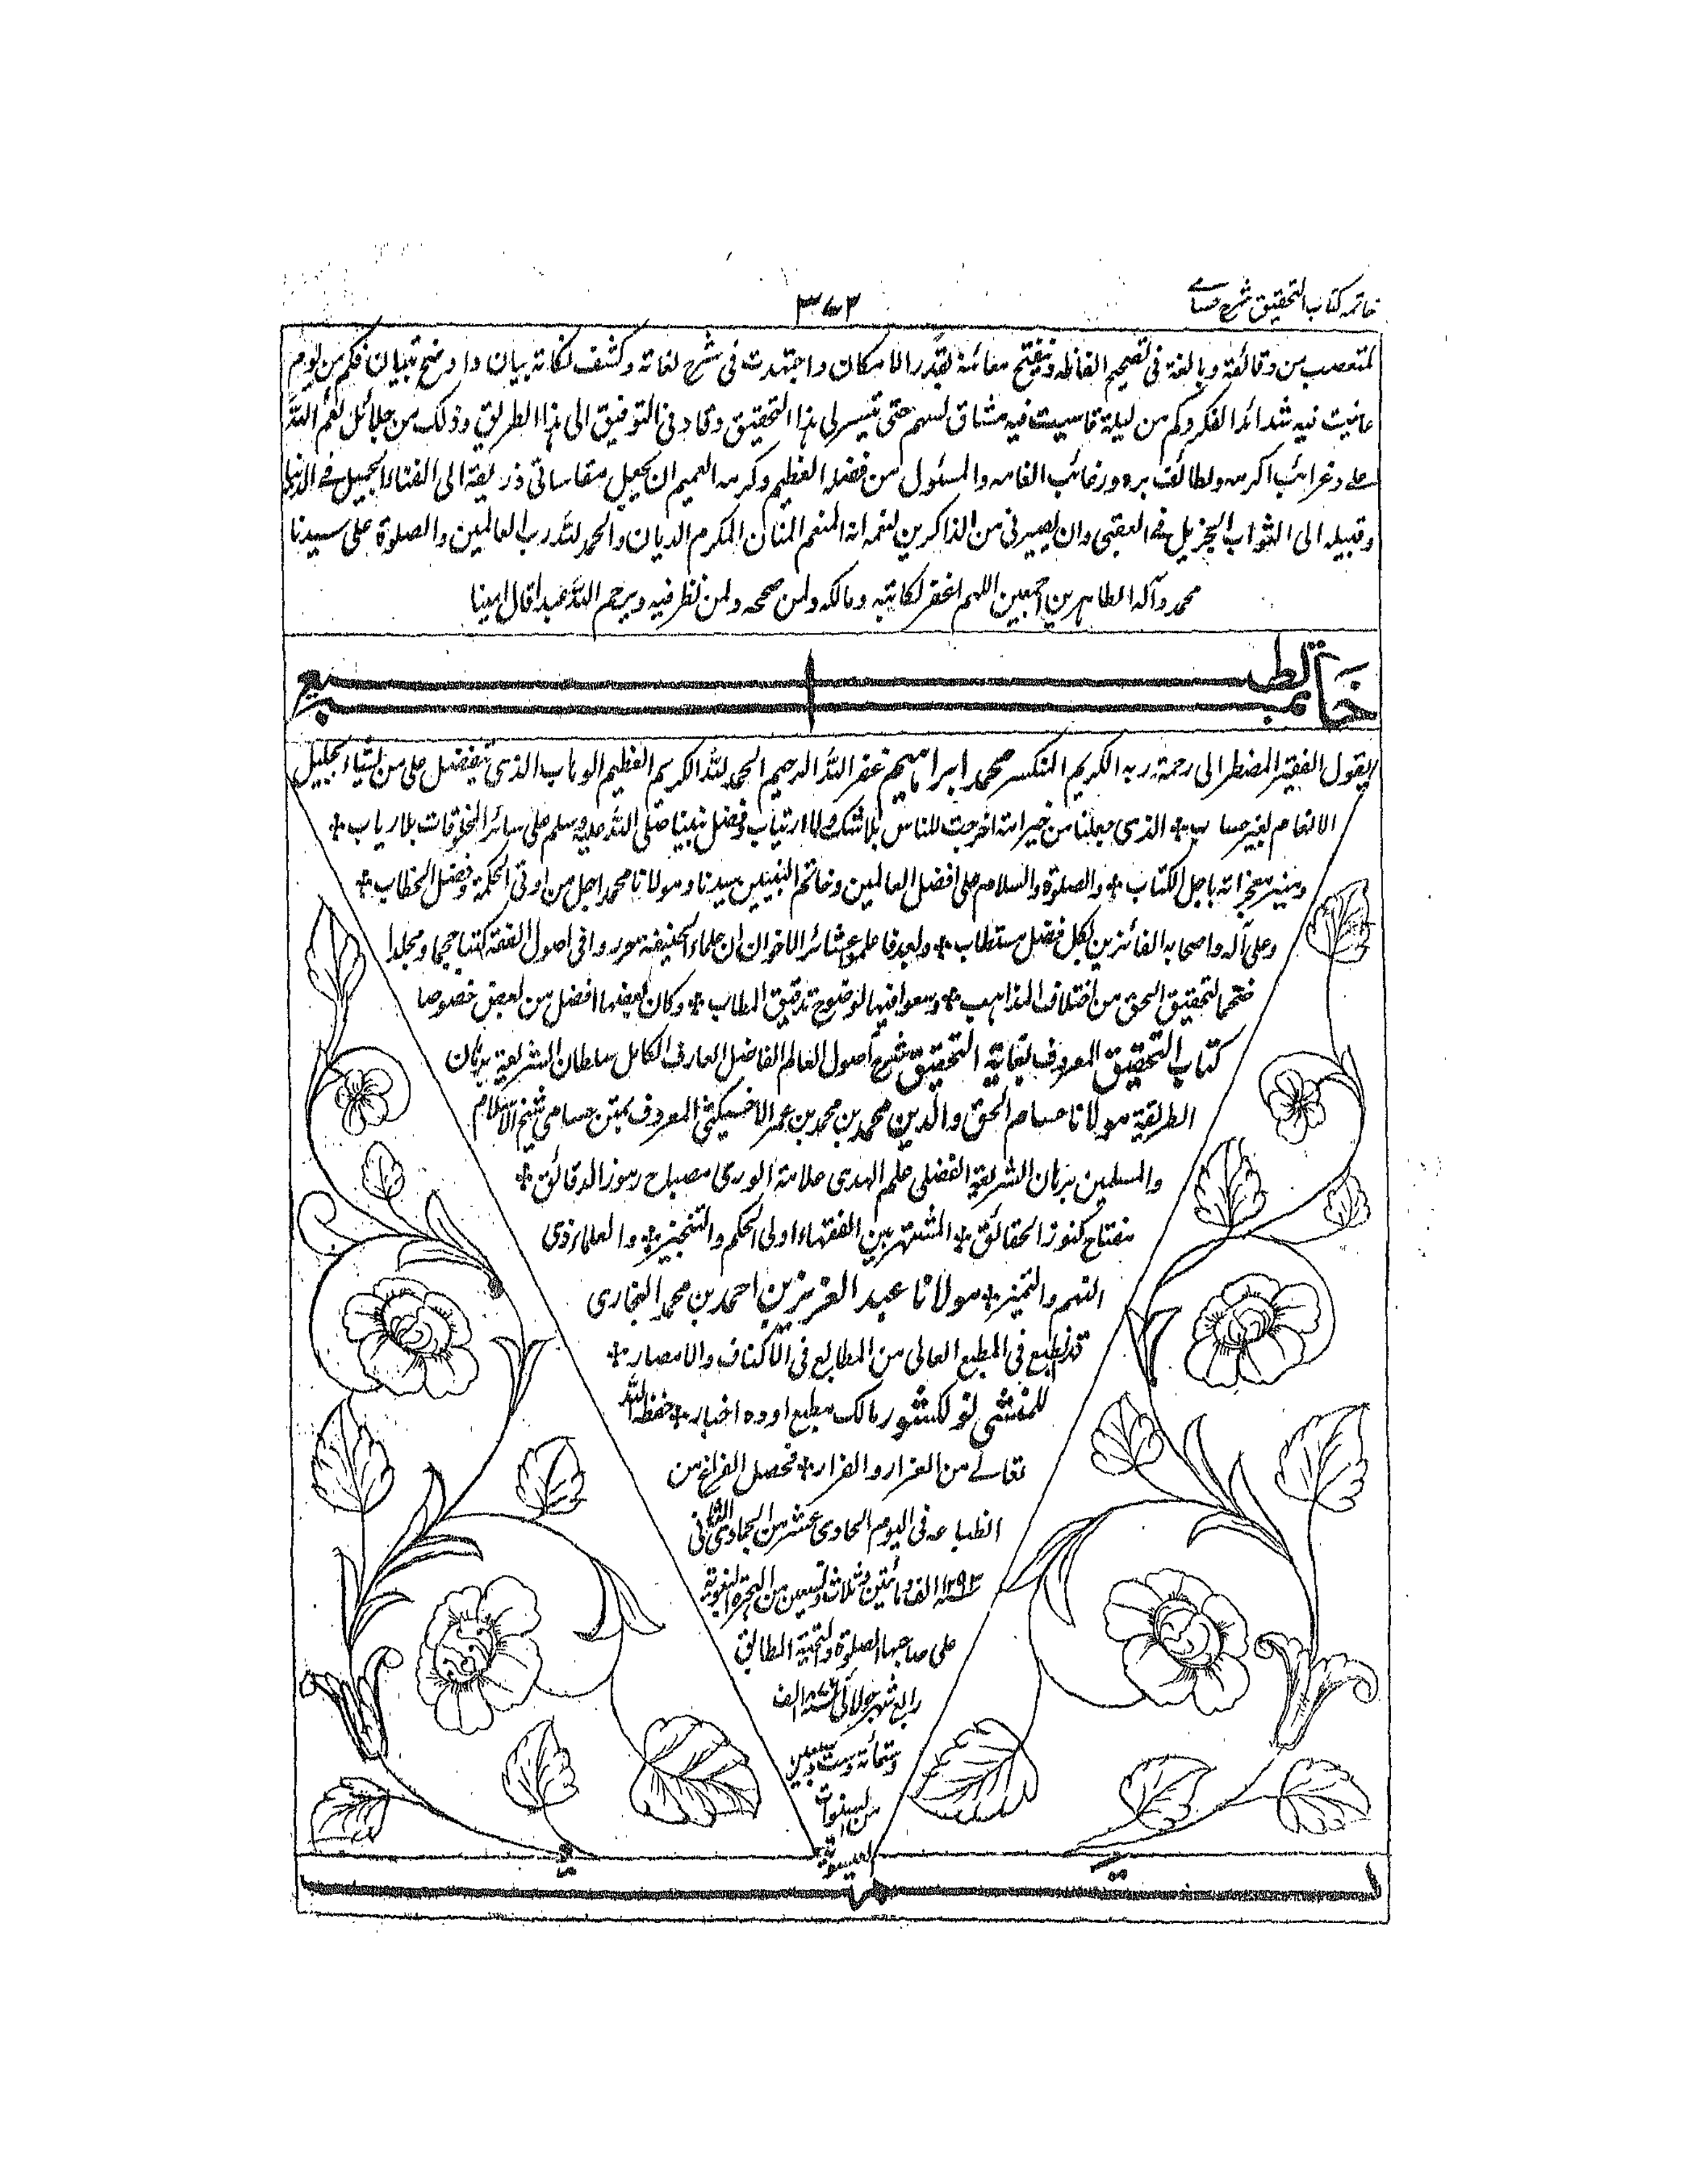 خاتمه کتاب التحقیق شرح حسامے
۳۷۲
لمتعصب من دقائقه وبالغة فی تصحیح الفاظه وتنقیح معانیه بقدر الامکان واجتهدت فی شرح لغاته وکشف نکاته ببیان واوضح تبیان فکم من یوم
عانیت فیه شدائد الفکر وکم من لیلة قاسیت فیه مشاق لسهر حتی تیسر لی هذا التحقیق وقادنی التوفیق الی هذا الطریق وذلک من جلائل نعم الله
علے وغرائب اکرمه ولطائف بره ورغائب انعامه والمسئول من فضله العظیم وکرمه العمیم ان یجعل مقاساتی ذریعة الی الثناء الجمیل فے الدنیا
وقبیله الی الثواب الجزیل فے العقبی وان یصیرنی من الذاکرین لنعمه انه المنعم المنان المکرم الدیان والحمد لله رب العالمین والصلوة علی سیدنا
محمد وآله الطاهرین اجمعین اللهم اغفر لکاتبه ومالکه ولمن صححه ولمن نظر فیه ویرحم الله عبدا قال امینا
خاتمة الطبع
یقول الفقیر المضطر الی رحمة ربه الکریم المنکسر محمد ابراهیم غفر الله الرحیم الحمد لله الکریم العظیم الوهاب الذی یتفضل علی من یشاء بجلیل
الانعام بغیر حساب * الذی جعلنا من خیر امة اخرجت للناس بلا شک ولا ارتیاب وفضل نبینا صلی الله علیه وسلم علی سائر المخلوقات بلا ریاب *
ومیز معجزاته باجل الکتاب * والصلوة والسلام علی افضل العالمین وخاتم النبیین سیدنا ومولانا محمد اجل من اوتی الحکمة وفصل الخطاب *
وعلی آله واصحابه الفائزین بکل فضل مستطاب * وبعد فاعلموا عشائر الاخوان ان علماء الحنیفة حرروا فی اصول الفقه کتبا حجما ومجلدا
ضخما لتحقیق الحق من اختلاف المذاهب * وسعوا فیها لوضوح تدقیق المطالب * وکان بعضها افضل من بعض خصوصا
کتاب التحقیق المعروف بغایة التحقیق شرح اصول العالم الفاضل العارف الکامل سلطان الشریعة برهان
الطریقة مولانا حسام الحق والدین محمد بن محمد بن عمر الاخسیکثی المعروف بمتن حسامی شیخ الاسلام
والمسلمین برهان الشریعة الفضلی علم الهدی علامة الوری مصباح رموز الدقائق *
مفتاح کنوز الحقائق * المشتهر بین الفقهاء اولی الحکم والتنجیز * والعلماء ذی
الفهم والتمیز * مولانا عبد العزیز بن احمد بن محمد البخاری
قد طبع فی المطبع العالی من المطابع فی الاکناف والامصار *
للمنشی نولکشور مالک مطبع اوده اخبار * حفظه الله
تعالے من العزار والفرار * فحصل الفراغ من
الطباعه فی الیوم الحادی عشر من الجمادی الثانی
۱۲۹۳ سنه الف ومائتین وثلاث وتسعین من الهجرة النبویة
علی صاحبها الصلوة والتحیة المطابق
رابع شهر جولائی ۱۸۷۶ سنه الف
وثمانمائة وست وسبعین
من السنوات
العیسویة
تمت